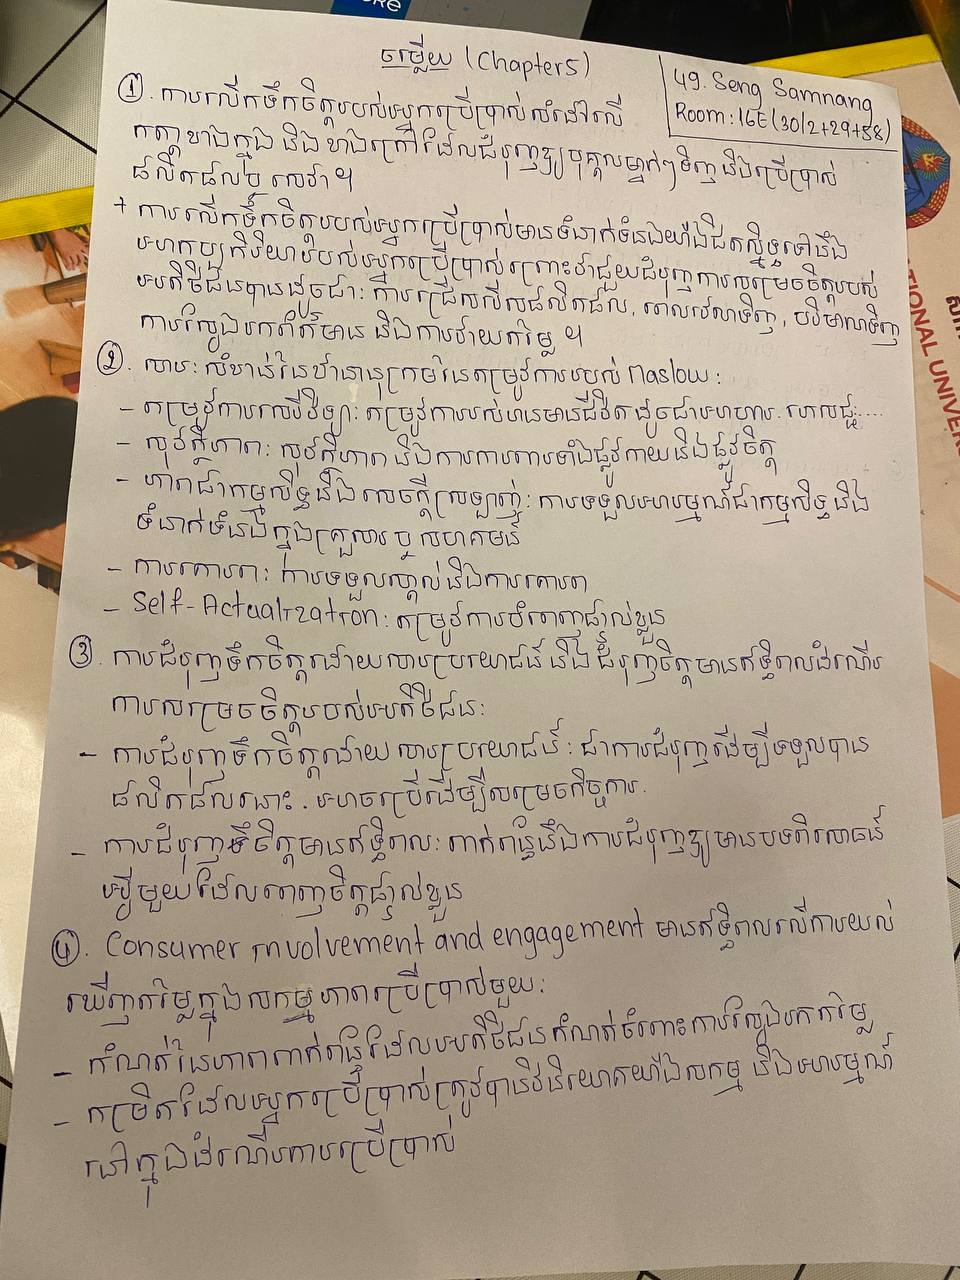 ចម្លើយ (Chapter5)
49. Seng Samnang
Room: 16E (30/2+29+58)
① . ការលើកទឹកចិត្តរបស់អ្នកប្រើប្រាស់សំដៅលើ
កត្តាខាងក្នុង និងខាងក្រៅដែលជំរុញឲ្យបុគ្គលម្នាក់ៗទិញ និងប្រើប្រាស់
ផលិតផលឬ សេវា ។
+ ការលើកទឹកចិត្តរបស់អ្នកប្រើប្រាស់មានទំនាក់ទំនងយ៉ាងជិតស្និទ្ធទៅនឹង
អាកប្បកិរិយារបស់អ្នកប្រើប្រាស់ព្រោះវាជួយជំរុញការសម្រេចចិត្តរបស់
អតិថិជនបានដូចជា: ការជ្រើសរើសផលិតផល, ពេលវេលាទិញ, បរិមាណទិញ
ការស្វែងរកព័ត៌មាន និងការវាយតម្លៃ ។
② . សារៈសំខាន់នៃឋានានុក្រមនៃតម្រូវការរបស់ Maslow :
- តម្រូវការសរីរវិទ្យា: តម្រូវការរស់រានមានជីវិតដូចជាអាហារ. ហេលផ្ទះ....
- សុវត្ថិភាព: សុវត្ថិភាព និងការការពារទាំងផ្លូវកាយនិងផ្លូវចិត្ត
- ភាពជាកម្មសិទ្ធនិងសេចក្តីស្រឡាញ់: ការទទួលអារម្មណ៍ជាកម្មសិទ្ធ និង
ទំនាក់ទំនងក្នុងគ្រួសារ ឬ សហគមន៍
- ការគោរព: ការទទួលស្គាល់និងការគោរព
- Self-Actualization: តម្រូវការបំពេញផ្ទាល់ខ្លួន
③ . ការជំរុញទឹកចិត្តដោយសារប្រយោជន៍ និង ជំរុញចិត្តមានឥទ្ធិពលដំណើរ
ការសម្រេចចិត្តរបស់អតិថិជន:
- ការជំរុញទឹកចិត្តដោយសារប្រយោជន៍: ជាការជំរុញដើម្បីទទួលបាន
ផលិតផលនោះ. អាចប្រើដើម្បីសម្រេចកិច្ចការ.
- ការជំរុញទឹចិត្តមានឥទ្ធិពល: ពាក់ព័ន្ធនឹងការជំរុញឲ្យមានបទពិសោធន៍
អ្វីមួយដែលពេញចិត្តផ្ទាល់ខ្លួន
④ . Consumer involvement and engagement មានឥទ្ធិពលលើការយល់
ឃើញតម្លៃក្នុងសកម្មភាពប្រើប្រាស់មួយ:
- កំណត់នៃភាពពាក់ព័ន្ធដែលអតិថិជនកំណត់ចំពោះការស្វែងរកតម្លៃ
- កម្រិតដែលអ្នកប្រើប្រាស់ត្រូវបានវិនិយោគយ៉ាងសកម្ម និងអារម្មណ៍
នៅក្នុងដំណើរការប្រើប្រាស់
TIONAL UNIVER